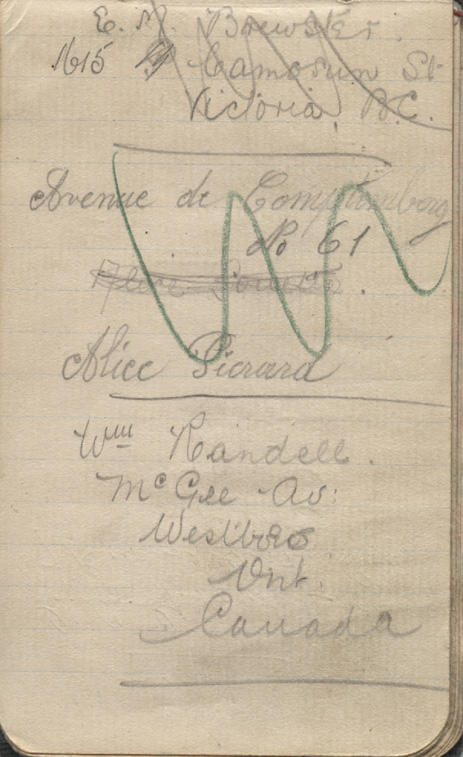 E. M. Brewster.
1615 Camosun St
Victoria, B.C.
Avenue de
No 61
Alice Pierard
Wm Randell.
McGee Av:
Westboro
Ont.
Canada